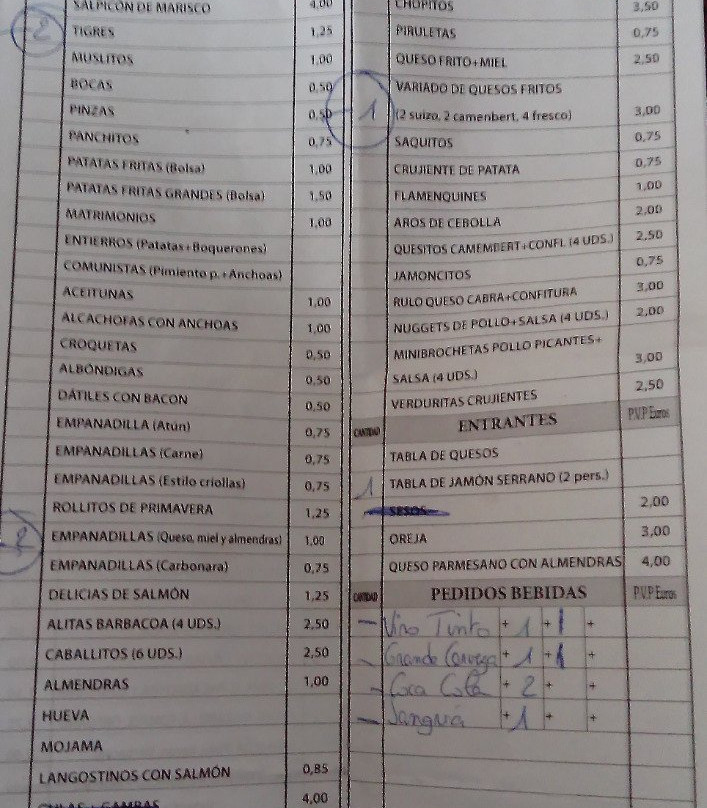 SALPICÓN DE MARISCO 4,00
2 TIGRES 1,25
MUSLITOS 1,00
BOCAS 0,50
PINZAS 0,50
PANCHITOS 0,75
PATATAS FRITAS (Bolsa) 1,00
PATATAS FRITAS GRANDES (Bolsa) 1,50
MATRIMONIOS 1,00
ENTIERROS (Patatas+Boquerones)
COMUNISTAS (Pimiento p.+Anchoas)
ACEITUNAS 1,00
ALCACHOFAS CON ANCHOAS 1,00
CROQUETAS 0,50
ALBÓNDIGAS 0,50
DÁTILES CON BACON 0,50
EMPANADILLA (Atún) 0,75
EMPANADILLAS (Carne) 0,75
EMPANADILLAS (Estilo criollas) 0,75
ROLLITOS DE PRIMAVERA 1,25
2 EMPANADILLAS (Queso, miel y almendras) 1,00
EMPANADILLAS (Carbonara) 0,75
DELICIAS DE SALMÓN 1,25
ALITAS BARBACOA (4 UDS.) 2,50
CABALLITOS (6 UDS.) 2,50
ALMENDRAS 1,00
HUEVA
MOJAMA
LANGOSTINOS CON SALMÓN 0,85
GULAS + GAMBAS 4,00
CHOPITOS 3,50
PIRULETAS 0,75
QUESO FRITO+MIEL 2,50
VARIADO DE QUESOS FRITOS
1 (2 suizo, 2 camenbert, 4 fresco) 3,00
SAQUITOS 0,75
CRUJIENTE DE PATATA 0,75
FLAMENQUINES 1,00
AROS DE CEBOLLA 2,00
QUESITOS CAMEMBERT+CONFI. (4 UDS.) 2,50
JAMONCITOS 0,75
RULO QUESO CABRA+CONFITURA 3,00
NUGGETS DE POLLO+SALSA (4 UDS.) 2,00
MINIBROCHETAS POLLO PICANTES+
SALSA (4 UDS.) 3,00
VERDURITAS CRUJIENTES 2,50
CANTIDAD ENTRANTES P.V.P Euros
TABLA DE QUESOS
1 TABLA DE JAMÓN SERRANO (2 pers.)
SESOS 2,00
OREJA 3,00
QUESO PARMESANO CON ALMENDRAS 4,00
CANTIDAD PEDIDOS BEBIDAS P.V.P Euros
— Vino Tinto + 1 + 1 +
— Grande Cerveza + 1 + 1 +
— Coca Cola + 2 + +
— Sangria + 1 + +